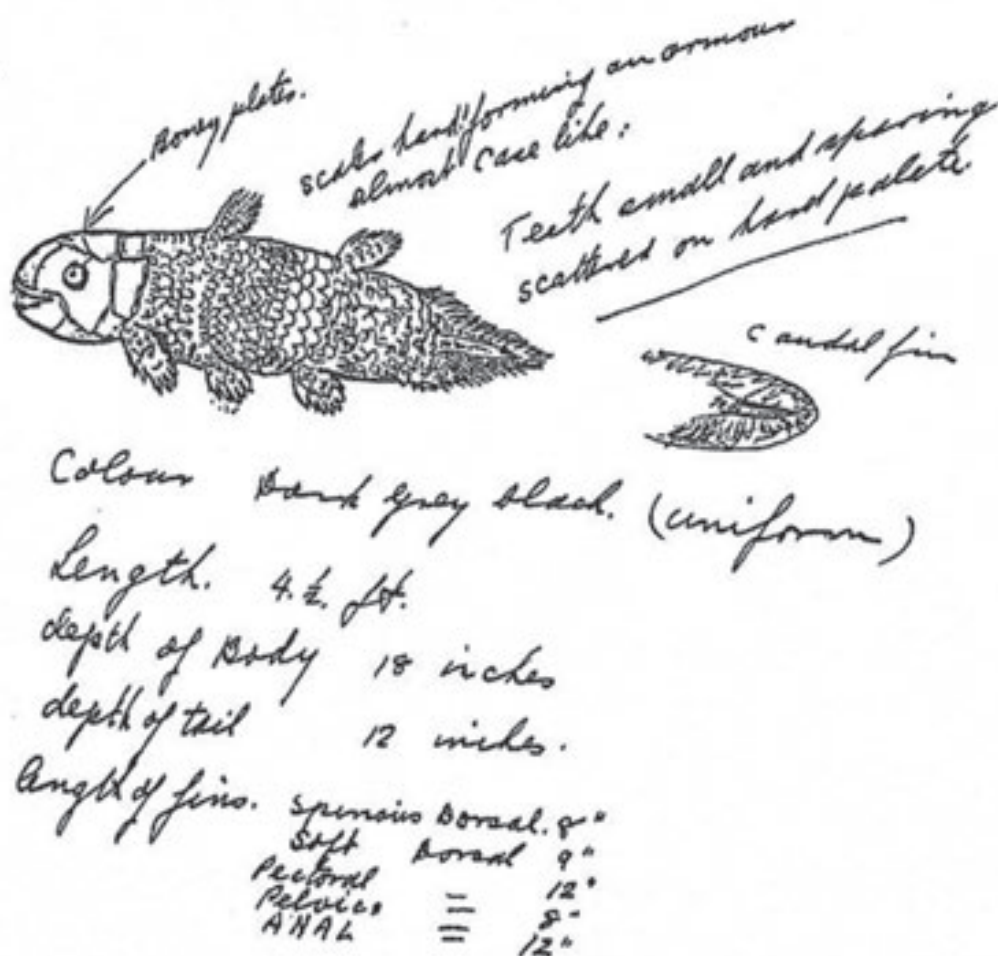 Boney plates.
scales hard! forming an armour
almost case like:
Teeth small and sparing
scattered on hard palate
Caudal fin
Colour Dark grey black. (uniform)
Length. 4.½. ft.
depth of Body 18 inches
depth of tail 12 inches.
length of fins. Spinous Dorsal. 8"
Soft Dorsal 9"
Pectoral 12"
Pelvic = 8"
ANAL = 12"